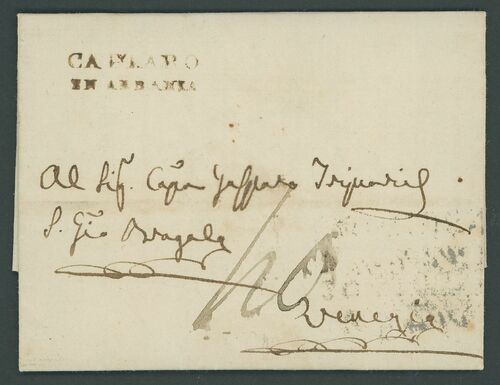 CATTARO
IN ALBANIA
Al Sig. Capn Gasparo
S. Gio Bragola
Venezia